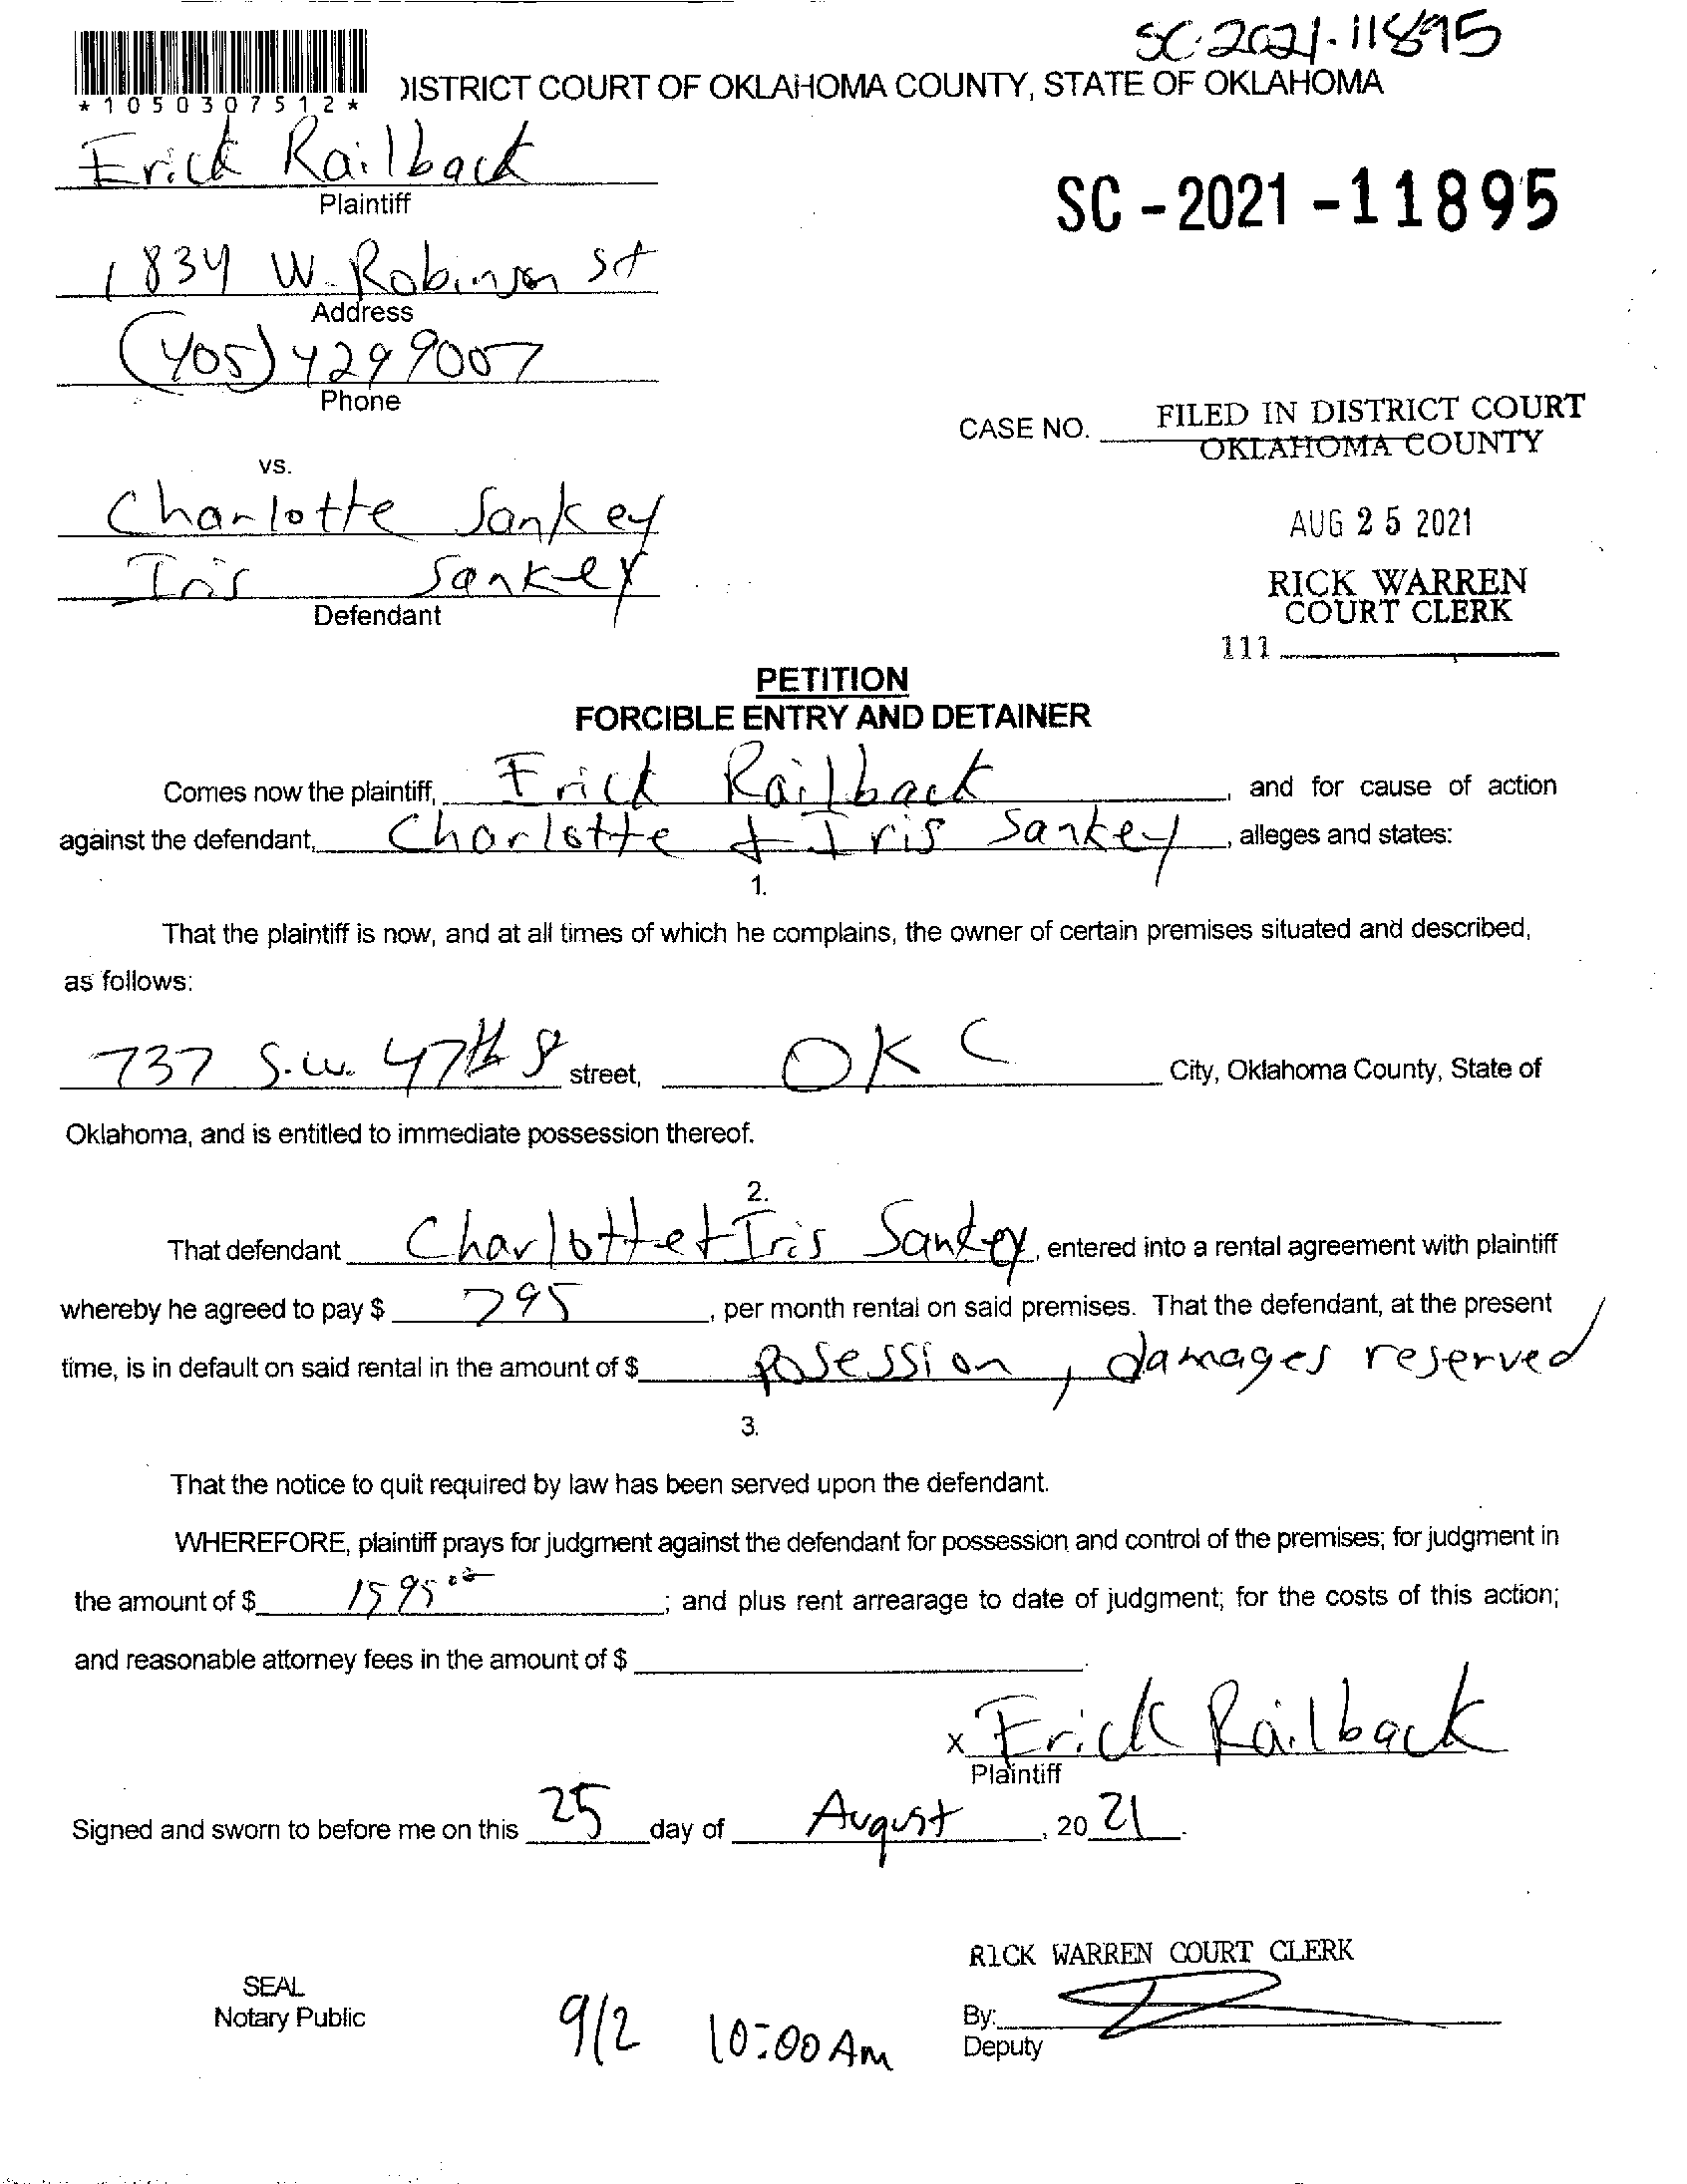 SC-2021-11895
*1050307512*
DISTRICT COURT OF OKLAHOMA COUNTY, STATE OF OKLAHOMA
Erick Railback
Plaintiff
SC-2021-11895
1834 W. Robinson St
Address
(405) 429 9007
Phone
CASE NO.
FILED IN DISTRICT COURT
OKLAHOMA COUNTY
vs.
Charlotte Sankey
AUG 25 2021
Iris Sankey
Defendant
RICK WARREN
COURT CLERK
111
PETITION
FORCIBLE ENTRY AND DETAINER
Comes now the plaintiff, Erick Railback, and for cause of action
against the defendant, Charlotte & Iris Sankey, alleges and states:
1.
That the plaintiff is now, and at all times of which he complains, the owner of certain premises situated and described,
as follows:
737 S.W. 47th St street, OKC City, Oklahoma County, State of
Oklahoma, and is entitled to immediate possession thereof.
2.
That defendant Charlotte + Iris Sankey, entered into a rental agreement with plaintiff
whereby he agreed to pay $ 795, per month rental on said premises. That the defendant, at the present
time, is in default on said rental in the amount of $ posession, damages reserved
3.
That the notice to quit required by law has been served upon the defendant.
WHEREFORE, plaintiff prays for judgment against the defendant for possession and control of the premises; for judgment in
the amount of $ 1595 00; and plus rent arrearage to date of judgment; for the costs of this action;
and reasonable attorney fees in the amount of $
x Erick Railback
Plaintiff
Signed and sworn to before me on this 25 day of August, 20 21.
RICK WARREN COURT CLERK
SEAL
Notary Public
9/2 10:00 Am
By:
Deputy